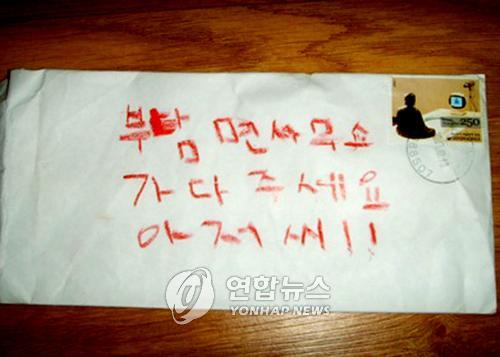 부남 면사무소
가다 주세요
아저씨!!
250
연합뉴스
YONHAP NEWS